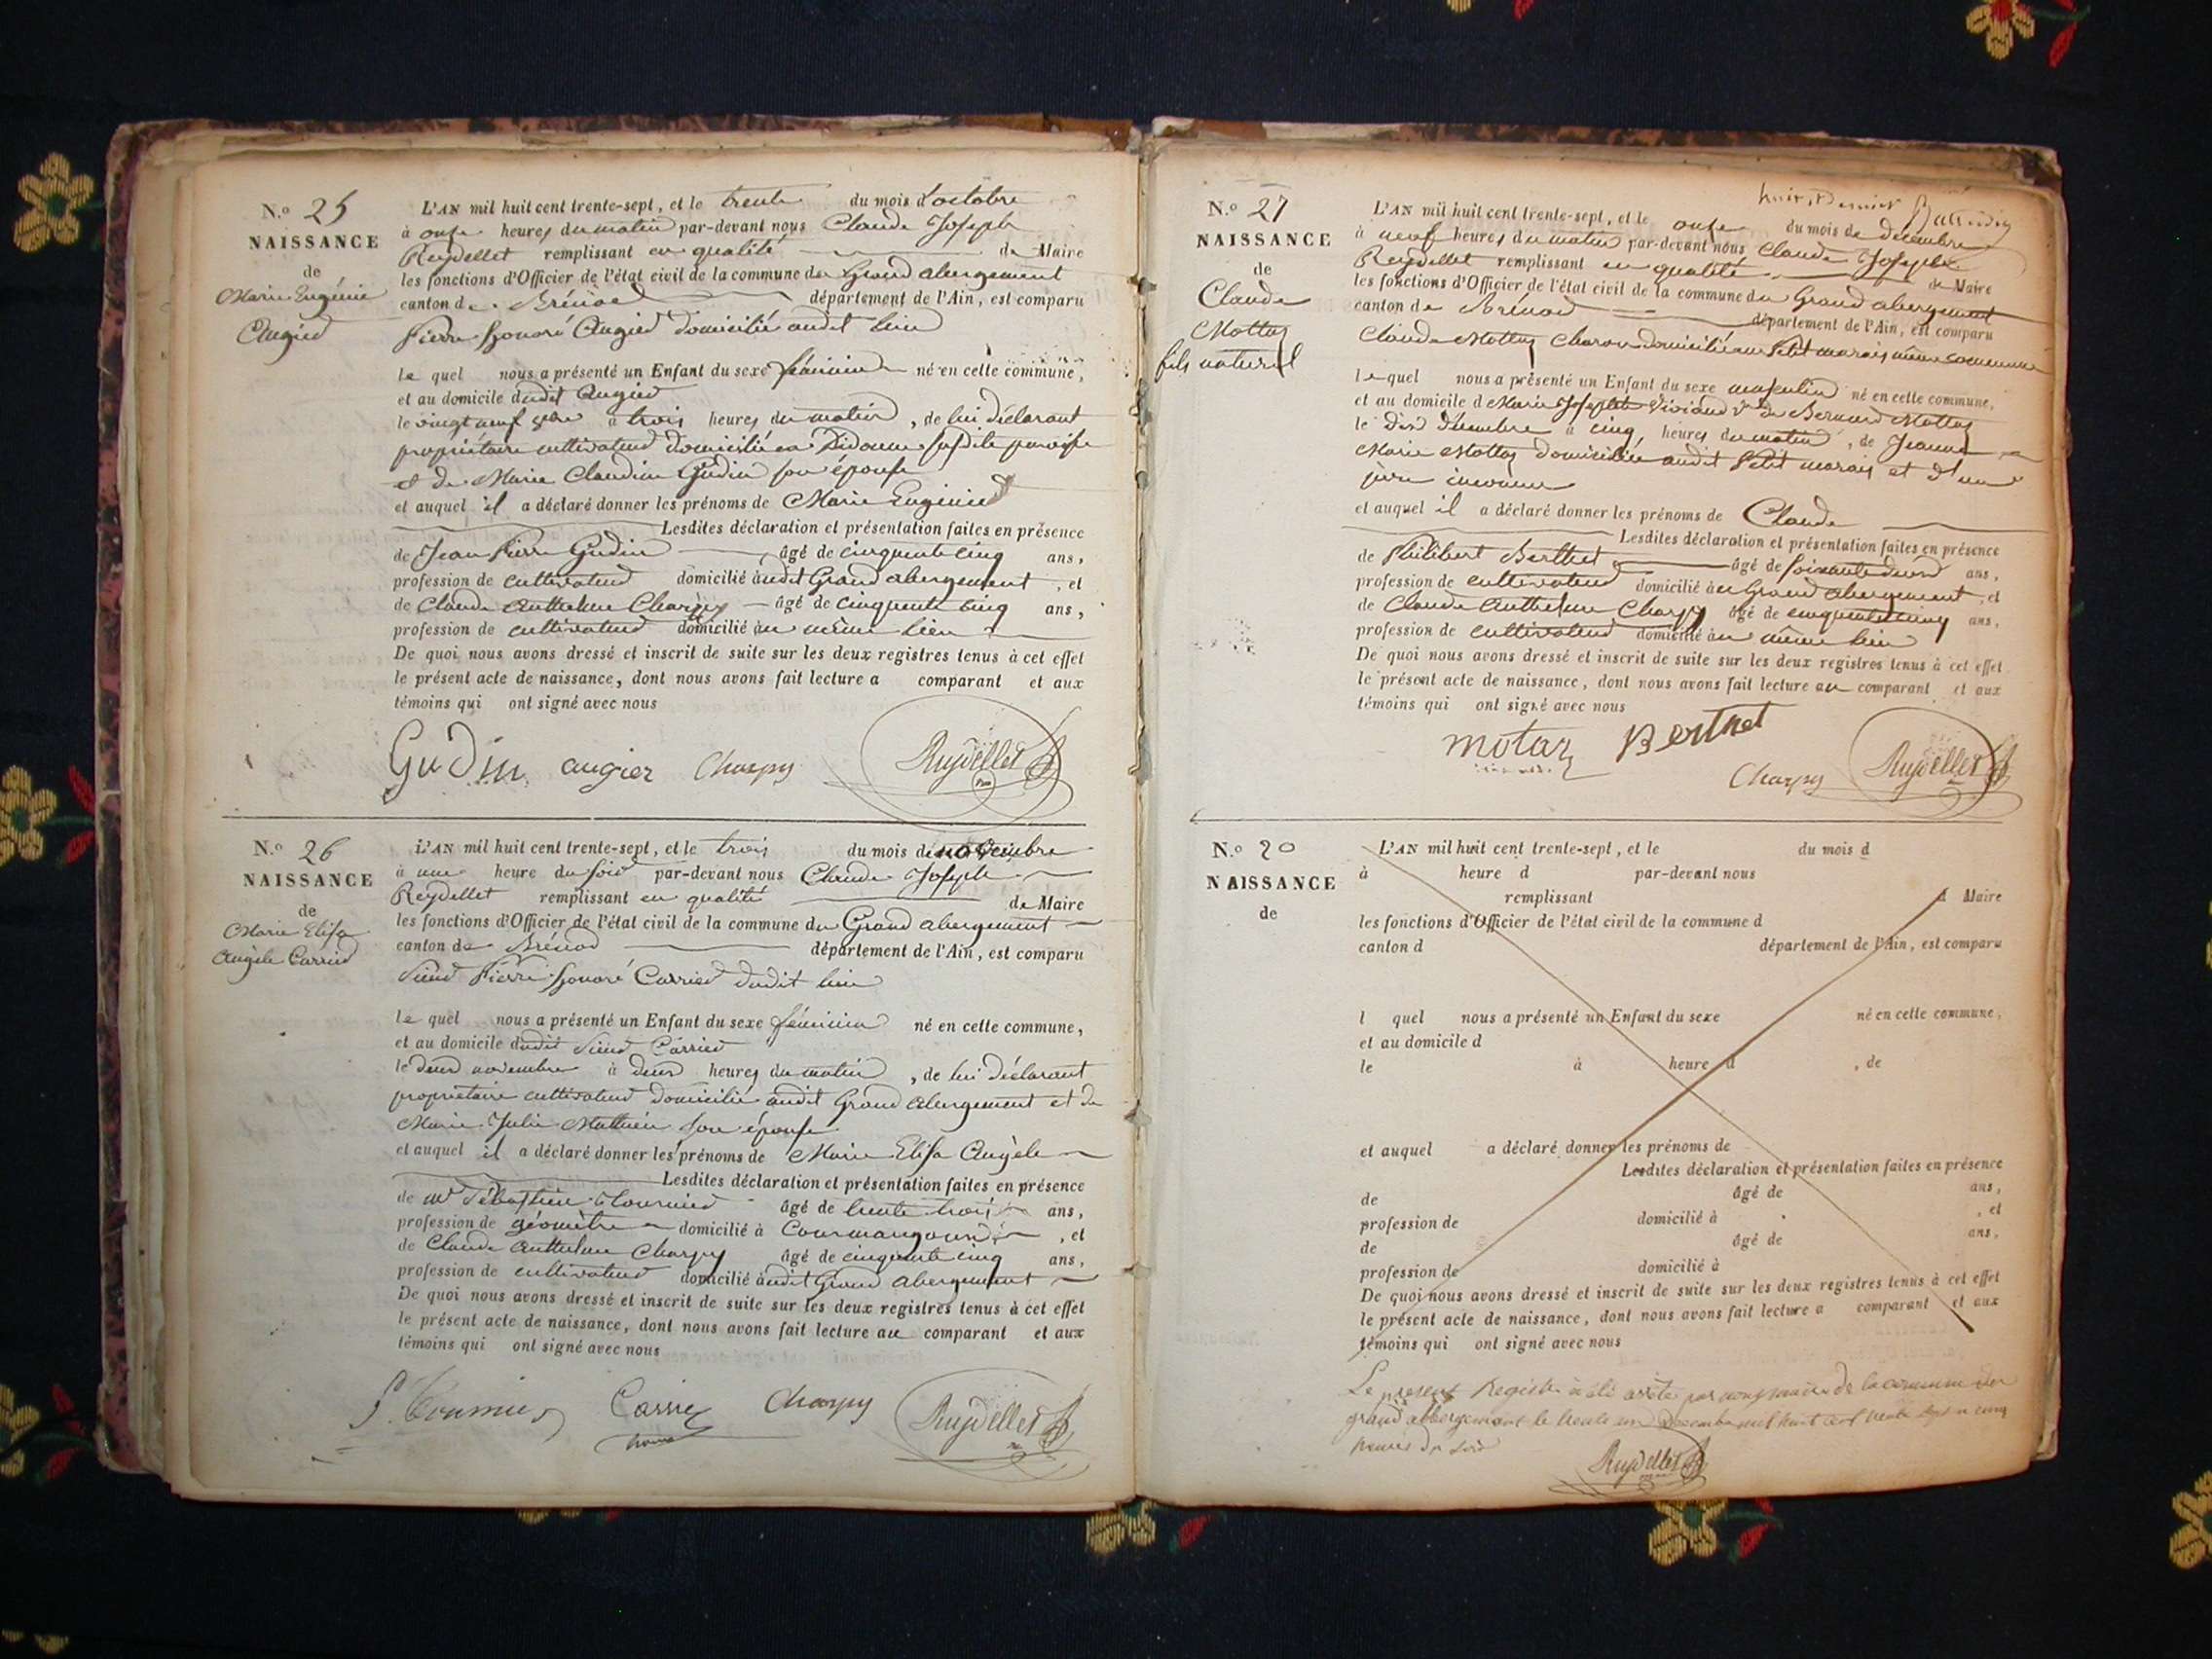 N.o 25
NAISSANCE
de
Marie Eugénie
Augier
L'AN mil huit cent trente-sept, et le trente du mois d'octobre
à onze heures du matin par-devant nous Claude Joseph
Reydellet remplissant en qualité de Maire
les fonctions d'Officier de l'état civil de la commune du Grand abergement
canton de Brénod département de l'Ain, est comparu
Pierre honoré Augier domicilié audit lieu
le quel nous a présenté un Enfant du sexe féminin né en cette commune,
et au domicile dudit Augier
le vingt neuf 8bre à trois heures du matin, de lui déclarant
propriétaire cultivateur domicilié en susdite paroisse
et de Marie Claudine Gudin son épouse
et auquel il a déclaré donner les prénoms de Marie Eugénie
Lesdites déclaration et présentation faites en présence
de Jean Pierre Gudin âgé de cinquante cinq ans,
profession de cultivateur domicilié audit Grand abergement, et
de Claude Anthelme Charpy âgé de cinquante cinq ans,
profession de cultivateur domicilié au même lieu
De quoi nous avons dressé et inscrit de suite sur les deux registres tenus à cet effet
le présent acte de naissance, dont nous avons fait lecture a comparant et aux
témoins qui ont signé avec nous
Gudin augier Charpy Reydellet
N.o 26
NAISSANCE
de
Marie Elisa
Angèle Carrier
L'AN mil huit cent trente-sept, et le trois du mois de novembre
à une heure du soir par-devant nous Claude Joseph
Reydellet remplissant en qualité de Maire
les fonctions d'Officier de l'état civil de la commune du Grand abergement
canton de Brénod département de l'Ain, est comparu
Sieur Pierre honoré Carrier dudit lieu
le quel nous a présenté un Enfant du sexe féminin né en cette commune,
et au domicile dudit Sieur Carrier
le deux novembre à deux heures du matin, de lui déclarant
propriétaire cultivateur domicilié audit Grand abergement et de
Marie Julie Mathieu son épouse
et auquel il a déclaré donner les prénoms de Marie Elisa Angèle
Lesdites déclaration et présentation faites en présence
de Mr Sébastien Tournier âgé de trente trois ans,
profession de géomètre domicilié à Courmangoux, et
de Claude Anthelme Charpy âgé de cinquante cinq ans,
profession de cultivateur domicilié audit Grand abergement
De quoi nous avons dressé et inscrit de suite sur les deux registres tenus à cet effet
le présent acte de naissance, dont nous avons fait lecture au comparant et aux
témoins qui ont signé avec nous
S. Tournier Carrier Charpy Reydellet
N.o 27
NAISSANCE
de
Claude
Mottaz
fils naturel
L'AN mil huit cent trente-sept, et le onze du mois de décembre
à neuf heures du matin par-devant nous Claude Joseph
Reydellet remplissant en qualité de Maire
les fonctions d'Officier de l'état civil de la commune du Grand abergement
canton de Brénod département de l'Ain, est comparu
Claude Mottaz Charon domicilié au Petit marais même commune
le quel nous a présenté un Enfant du sexe masculin né en cette commune,
et au domicile d Marie Josephte Viviand Ve de Bernard Mottaz
le dix décembre à cinq heures du matin, de Jeanne
Marie Mottaz domiciliée audit Petit marais et d'un
père inconnu
et auquel il a déclaré donner les prénoms de Claude
Lesdites déclaration et présentation faites en présence
de Philibert Berthet âgé de soixante deux ans,
profession de cultivateur domicilié au Grand abergement, et
de Claude Anthelme Charpy âgé de cinquante cinq ans,
profession de cultivateur domicilié au même lieu
De quoi nous avons dressé et inscrit de suite sur les deux registres tenus à cet effet
le présent acte de naissance, dont nous avons fait lecture au comparant et aux
témoins qui ont signé avec nous
motaz Berthet
Charpy Reydellet
N.o 20
NAISSANCE
de
L'AN mil huit cent trente-sept, et le du mois d
à heure d par-devant nous
remplissant d Maire
les fonctions d'Officier de l'état civil de la commune d
canton d département de l'Ain, est comparu
l quel nous a présenté un Enfant du sexe né en cette commune,
et au domicile d
le à heure d , de
et auquel a déclaré donner les prénoms de
Lesdites déclaration et présentation faites en présence
de âgé de ans,
profession de domicilié à , et
de âgé de ans,
profession de domicilié à
De quoi nous avons dressé et inscrit de suite sur les deux registres tenus à cet effet
le présent acte de naissance, dont nous avons fait lecture a comparant et aux
témoins qui ont signé avec nous
Le present Registre a été arrêté par nous maire de la commune du
grand abbergement le trente un Decembre mil huit cent trente sept a cinq
heures du soir
Reydellet